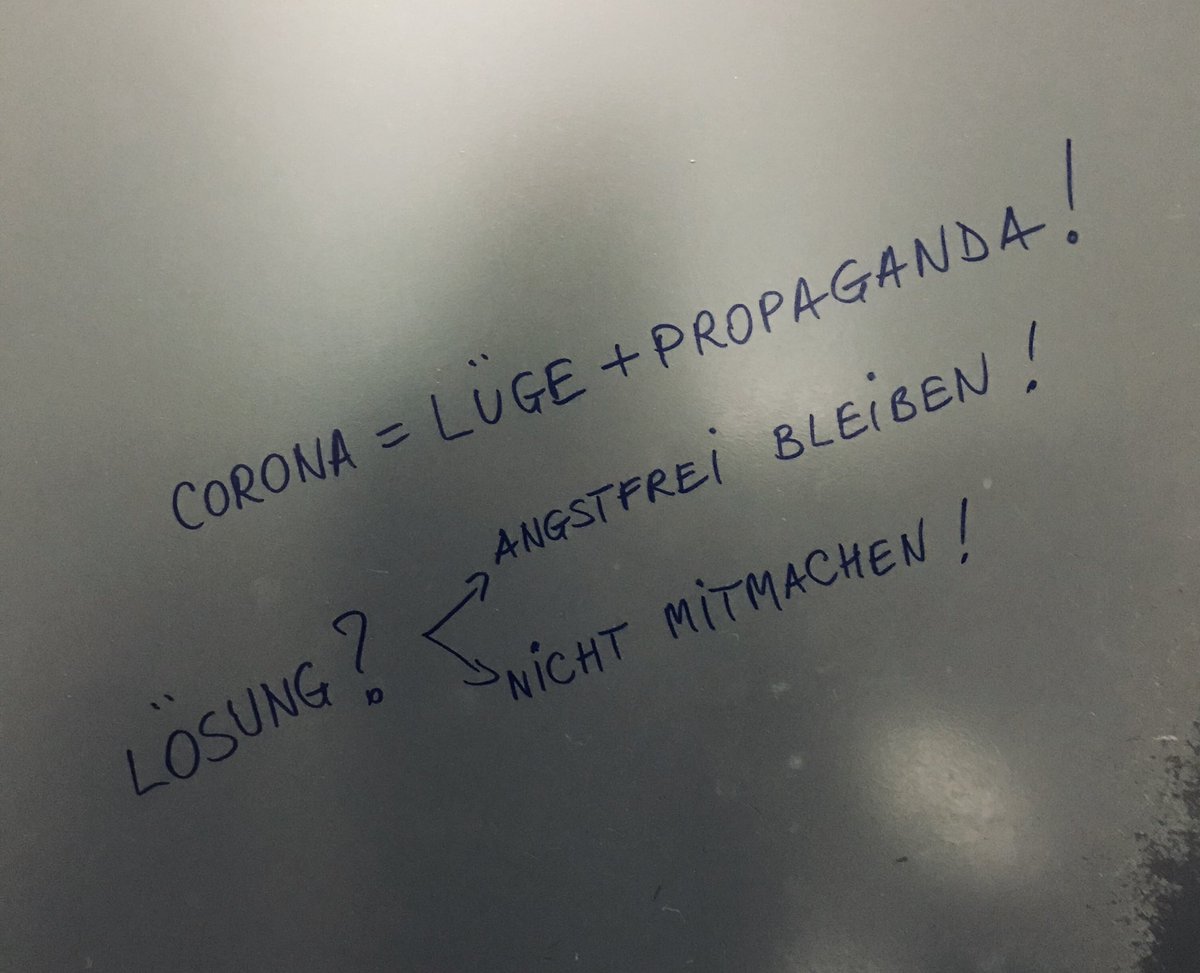 CORONA = LÜGE + PROPAGANDA!
LÖSUNG?
→ ANGSTFREI BLEIBEN!
→ NICHT MITMACHEN!